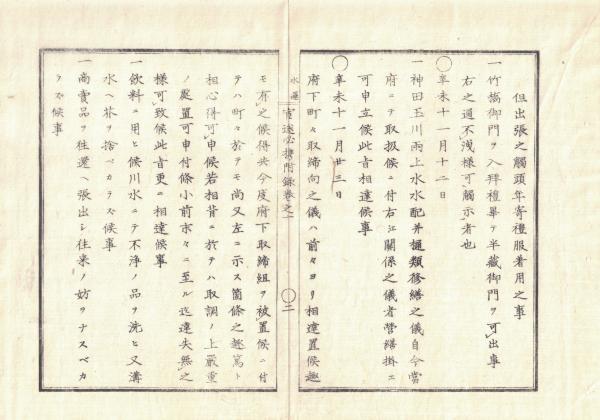 但出張之觸頭年寄禮服着用之事
一竹橋御門ヲ入拜禮畢テ半藏御門ヲ可出事
右之通不洩樣可觸示者也
〇辛未十一月十二日
一神田玉川兩上水水配并樋類修繕之儀自今當
府ニテ取扱候ニ付右ニ關係之儀者營繕掛ニ
可申立候此旨相達候事
〇辛未十一月廿三日
府下町々取締向之儀ハ前々ヨリ相達置候趣
官途必携附錄卷之一
〇二
モ有之候得共今度府下取締組ヲ被置候ニ付
テハ町々於テモ尚又左ニ示ス箇條之趣篤ト
相心得可申候若相背ニ於テハ取調ノ上嚴重
ノ處置可申付條小前末々ニ至ル迄違失無之
樣可致候此旨更ニ相達候事
一飲料ニ用ヒ候川水ニテ不淨ノ品ヲ洗ヒ又溝
水ヘ芥ヲ捨ベカラス候事
一商賣品ヲ往還ヘ張出シ往來ノ妨ヲナスベカ
ラス候事